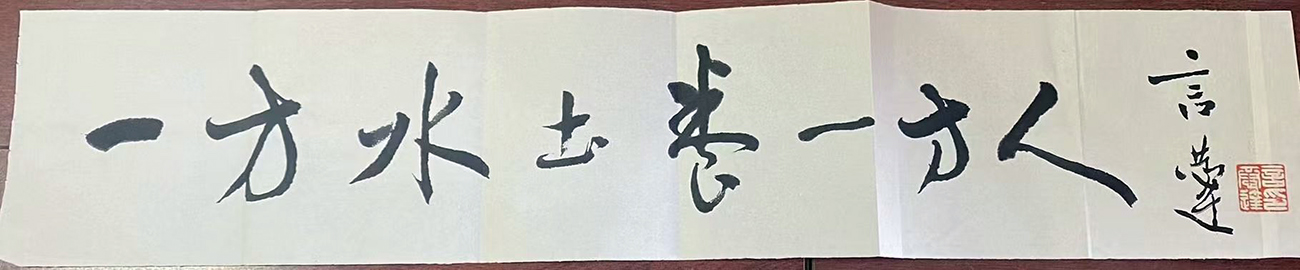 一方水土養一方人
言恭達